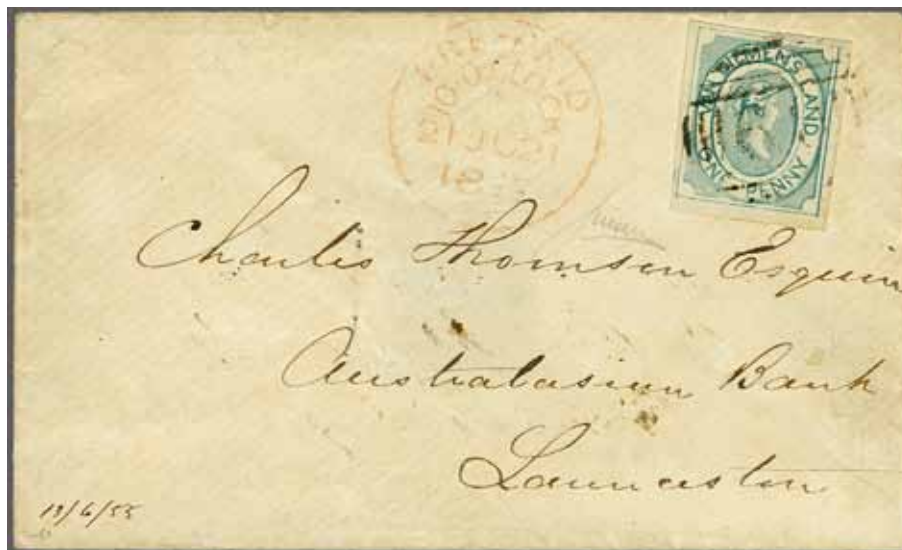 PREPAID
10 O'CLOCK
18
VAN DIEMEN'S LAND
ONE PENNY
Charles Thomson Esquire
Australasian Bank
Launceston